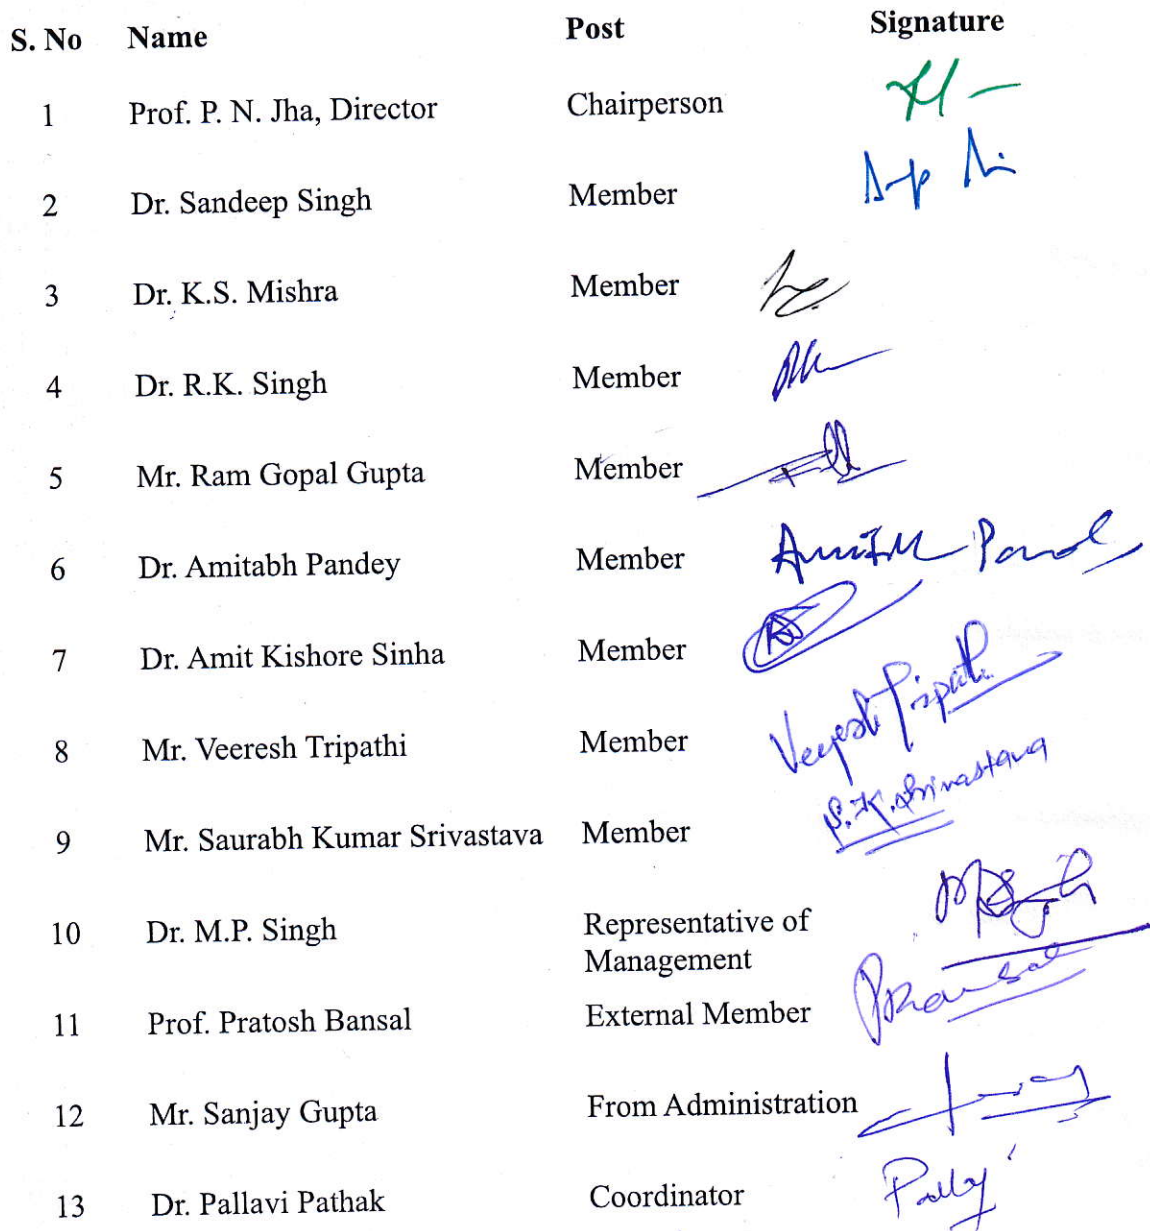 S. No Name Post Signature
1 Prof. P. N. Jha, Director Chairperson
2 Dr. Sandeep Singh Member
3 Dr. K.S. Mishra Member
4 Dr. R.K. Singh Member
5 Mr. Ram Gopal Gupta Member
6 Dr. Amitabh Pandey Member
7 Dr. Amit Kishore Sinha Member
8 Mr. Veeresh Tripathi Member Veeresh Tripathi
9 Mr. Saurabh Kumar Srivastava Member S.K. Srivastava
10 Dr. M.P. Singh Representative of
Management
11 Prof. Pratosh Bansal External Member PBansal
12 Mr. Sanjay Gupta From Administration
13 Dr. Pallavi Pathak Coordinator